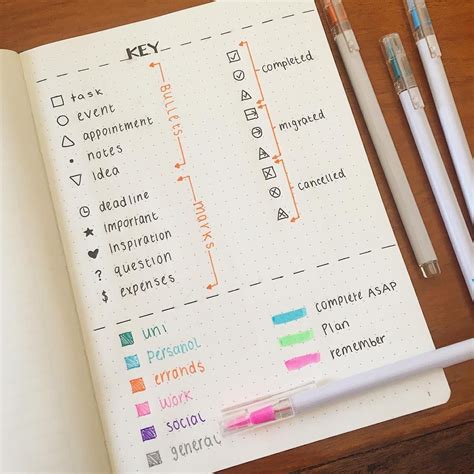 KEY
task
event
appointment
notes
Idea
Bullets
deadline
Important
Inspiration
? question
$ expenses
marks
completed
migrated
cancelled
uni
Persanol
errands
work
social
general
complete ASAP
Plan
remember